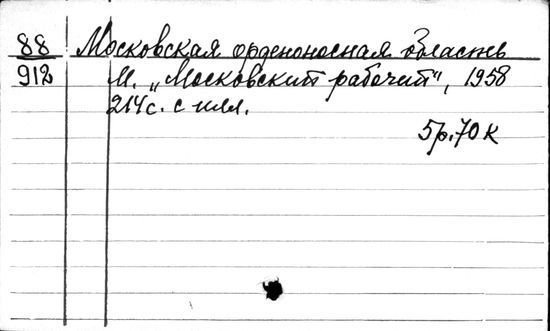 88 Московская орденоносная область
912 М. „Московский рабочий", 1958
214с. с илл.
5р.70к